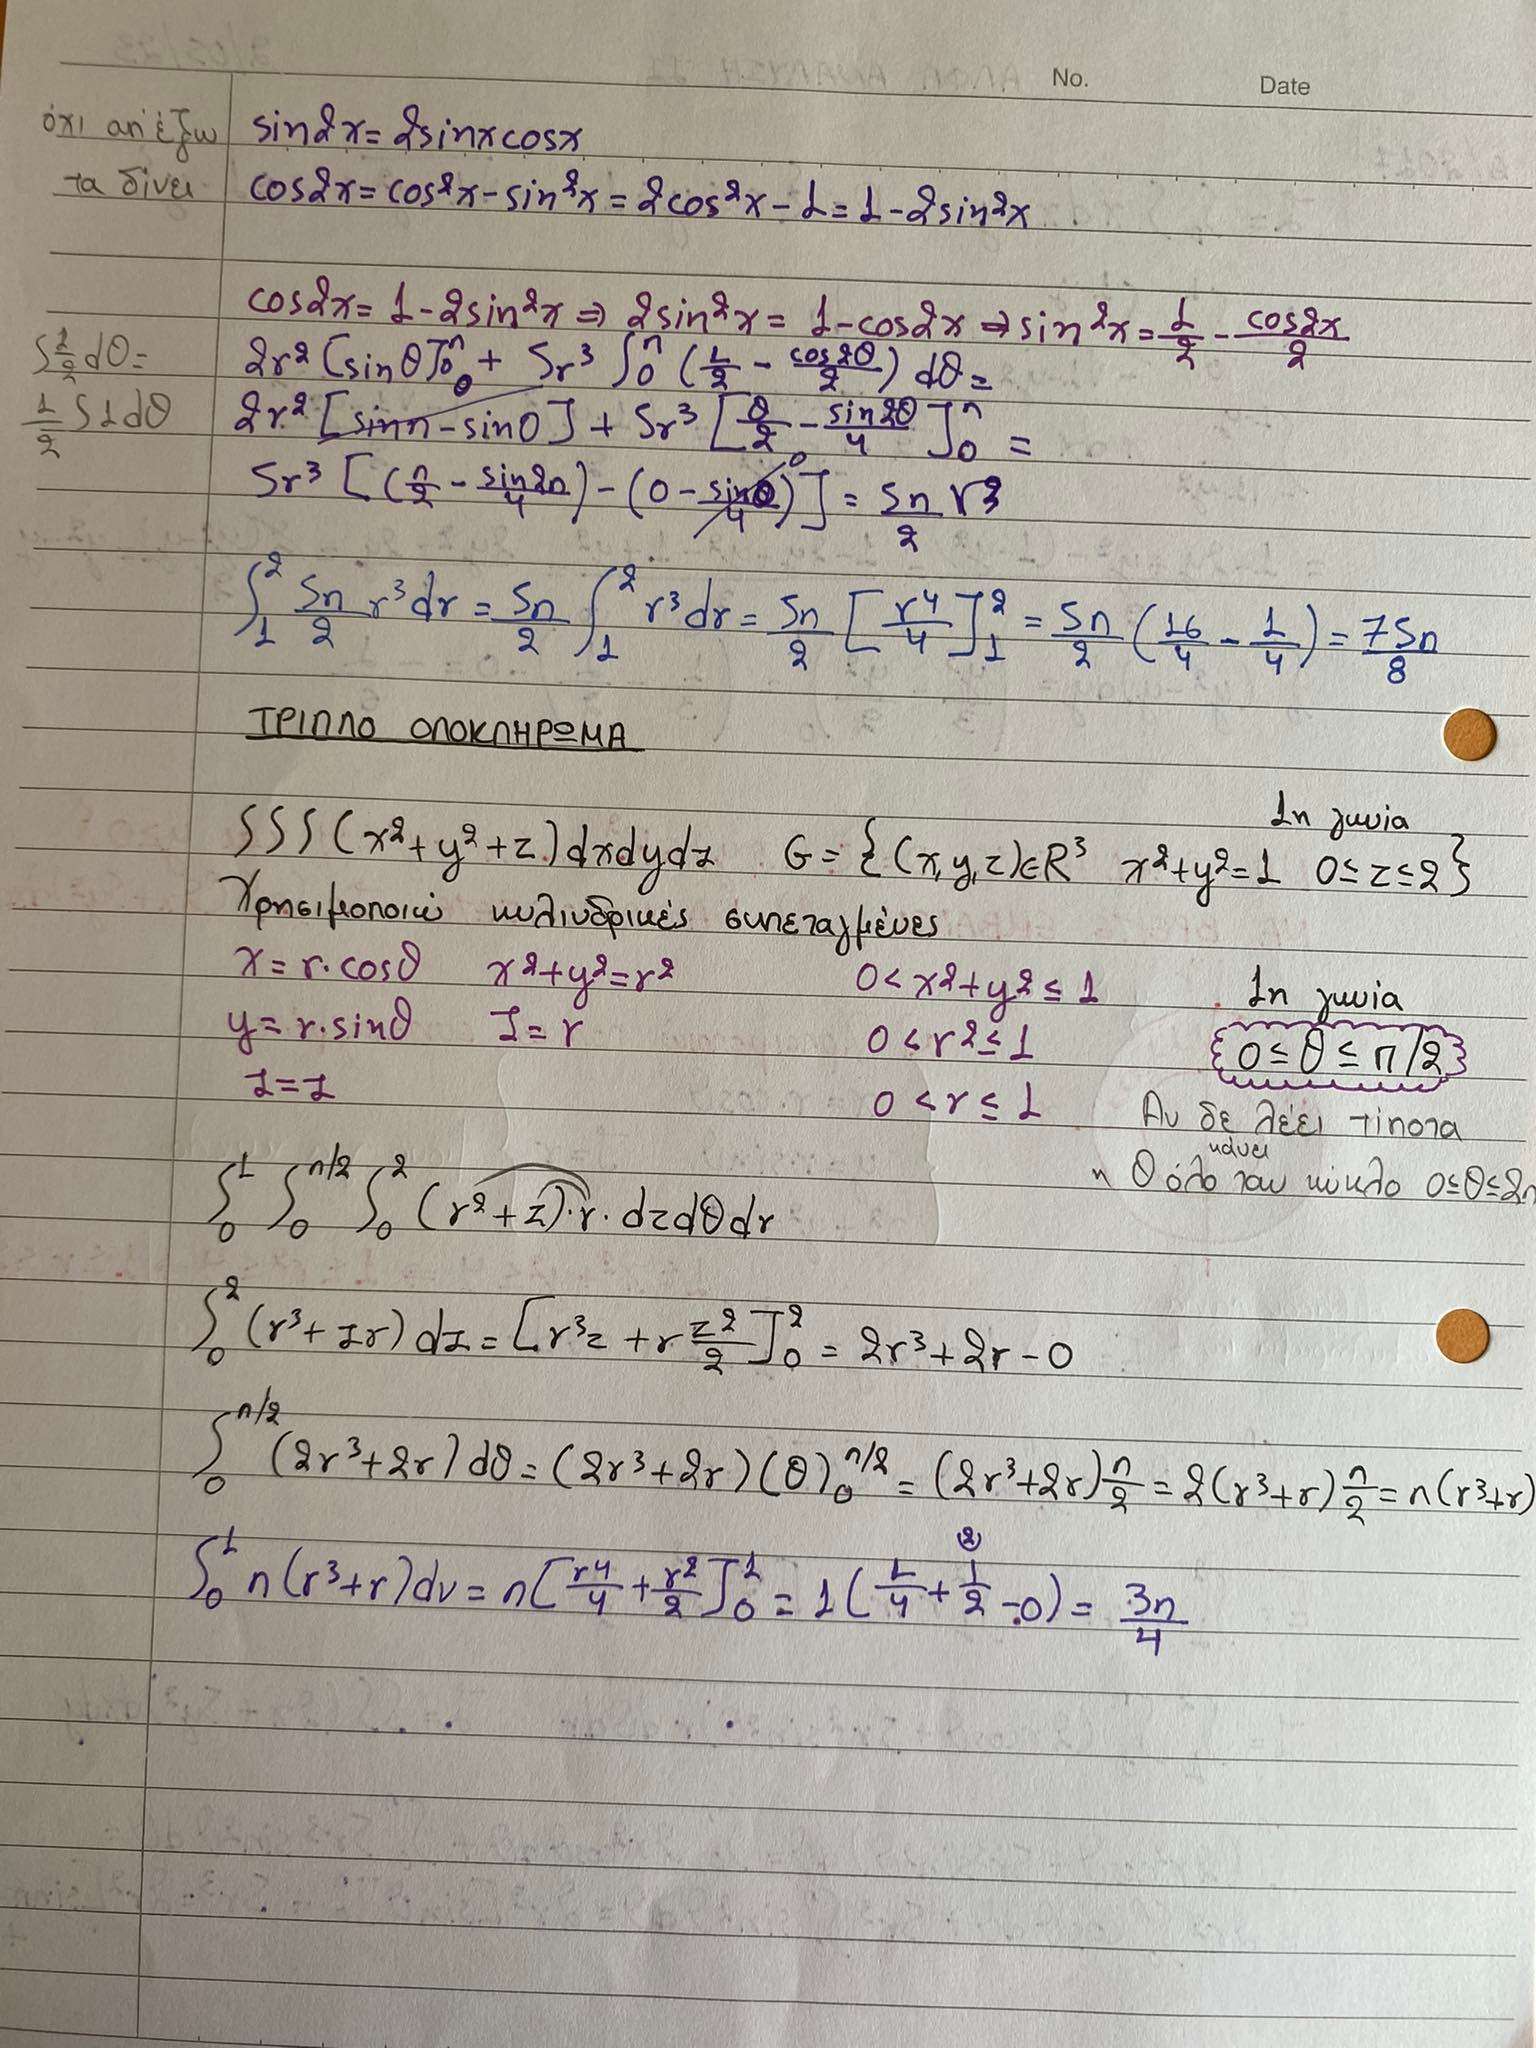 No. Date
όχι απ' έξω
τα δίνει
sin2x = 2sinxcosx
cos2x = cos²x - sin²x = 2cos²x - 1 = 1 - 2sin²x
cos2x = 1 - 2sin²x ⇒ 2sin²x = 1 - cos2x ⇒ sin²x = 1/2 - cos2x/2
∫ 1/2 dθ =
1/2 ∫ 1dθ
2r² [sinθ]₀^π + 5r³ ∫₀^π (1/2 - cos2θ/2) dθ =
2r² [sinπ - sin0] + 5r³ [θ/2 - sin2θ/4]₀^π =
5r³ [(π/2 - sin2π/4) - (0 - sin0/4)] = 5π/2 r³
∫₁² 5π/2 r³dr = 5π/2 ∫₁² r³dr = 5π/2 [r⁴/4]₁² = 5π/2 (16/4 - 1/4) = 75π/8
ΤΡΙΠΛΟ ΟΛΟΚΛΗΡΩΜΑ
1η γωνία
∫∫∫(x²+y²+z)dxdydz G = {(x,y,z)∈R³ x²+y²=1 0≤z≤2}
Χρησιμοποιώ κυλινδρικές συντεταγμένες
x = r·cosθ x²+y²=r² 0<x²+y²≤1 1η γωνία
y = r·sinθ I = r 0<r²≤1 0≤θ≤π/2
z = z 0<r≤1
Αν δε λέει τίποτα
κάνει
η θ όλο τον κύκλο 0≤θ≤2π
∫₀¹ ∫₀^π/2 ∫₀² (r²+z)·r·dzdθdr
∫₀² (r³+zr)dz = [r³z + r z²/2]₀² = 2r³+2r-0
∫₀^π/2 (2r³+2r)dθ = (2r³+2r)(θ)₀^π/2 = (2r³+2r)π/2 = 2(r³+r)π/2 = π(r³+r)
∫₀¹ π(r³+r)dr = π[r⁴/4 + r²/2]₀¹ = 1(1/4 + 1/2 - 0) = 3π/4